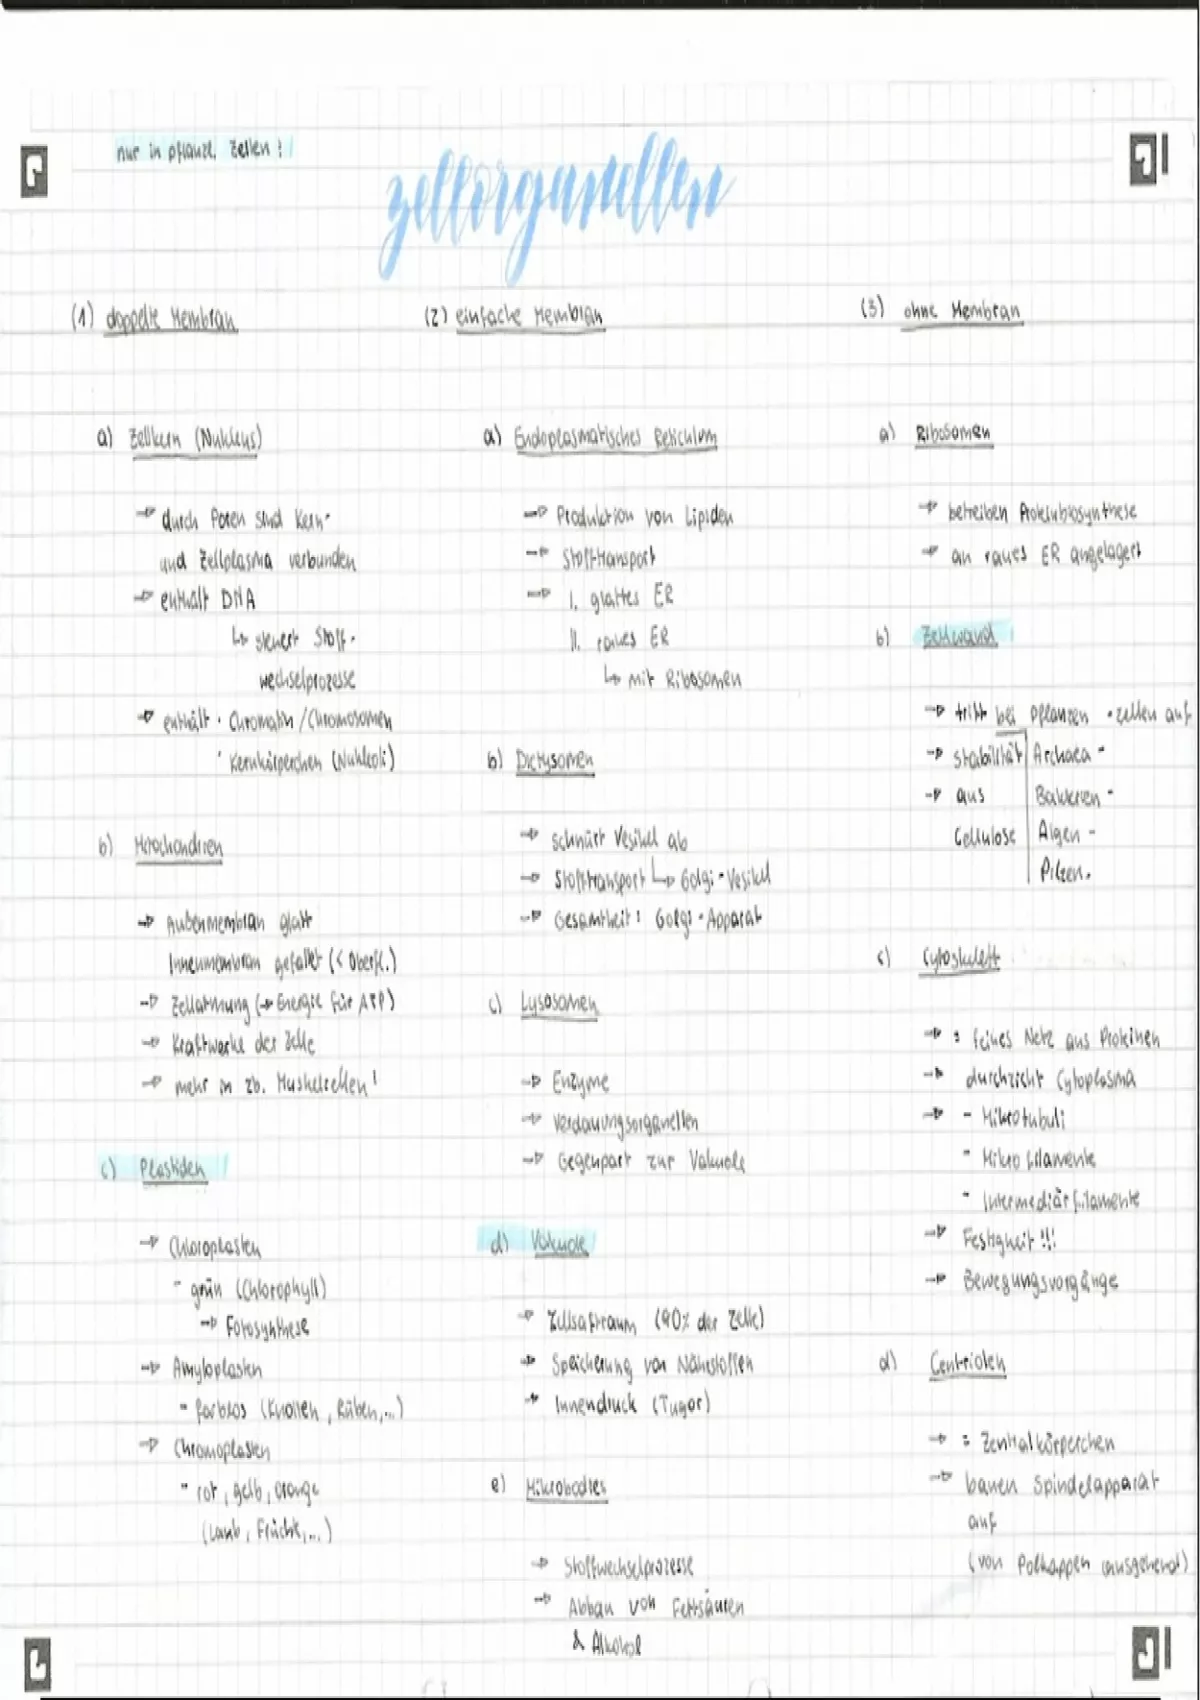 nur in pflanzl. Zellen !
zellorganellen
(1) doppelte Membran
a) Zellkern (Nukleus)
→ durch Poren sind Kern-
und Zellplasma verbunden
→ enthält DNA
↳ steuert Stoff-
wechselprozesse
→ enthält · Chromatin / Chromosomen
· Kernkörperchen (Nukleoli)
b) Mitochondrien
→ Außenmembran glatt
Innenmembran gefaltet (< Oberfl.)
→ Zellatmung (→ Energie für ATP)
→ Kraftwerke der Zelle
→ mehr in zb. Muskelzellen!
c) Plastiden
→ Chloroplasten
- grün (Chlorophyll)
→ Fotosynthese
→ Amyloplasten
- farblos (Knollen, Rüben,...)
→ Chromoplasten
- rot, gelb, orange
(Laub, Früchte,...)
(2) einfache Membran
a) Endoplasmatisches Retichlum
→ Produktion von Lipiden
→ Stofftransport
→ I. glattes ER
II. raues ER
↳ mit Ribosomen
b) Dictysomen
→ schnürt Vesikel ab
→ Stofftransport ↳ Golgi-Vesikel
→ Gesamtheit: Golgi-Apparat
c) Lysosomen
→ Enzyme
→ Verdauungsorganellen
→ Gegenpart zur Vakuole
d) Vakuole
→ Zellsaftraum (90% der Zelle)
→ Speicherung von Nährstoffen
→ Innendruck (Tugor)
e) Mikrobodies
→ Stoffwechselprozesse
→ Abbau von Fettsäuren
& Alkohol
(3) ohne Membran
a) Ribosomen
→ betreiben Proteinbiosynthese
→ an raues ER angelagert
b) Zellwand
→ tritt bei Pflanzen -zellen auf
→ stabilität Archaea -
→ aus Bakterien -
Cellulose Algen -
Pilzen.
c) Cytoskelett
→ : feines Netz aus Proteinen
→ durchzieht Cytoplasma
→ - Mikrotubuli
- Mikrofilamente
- Intermediärfilamente
→ Festigkeit !!!
→ Bewegungsvorgänge
d) Centriolen
→ : Zentralkörperchen
→ bauen Spindelapparat
auf
(von Polkappen ausgehend)